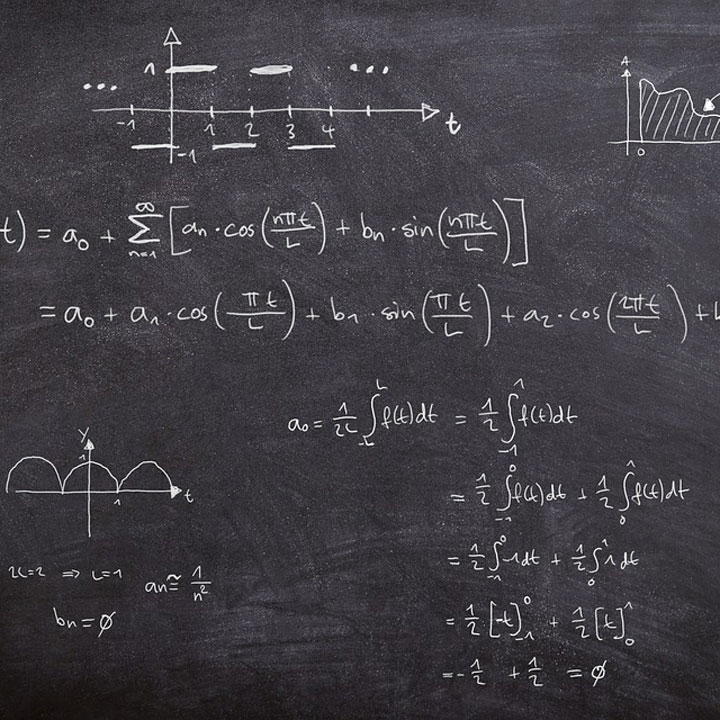 1 ... ...
-1 1 2 3 4 t
-1
A
0
t) = a₀ + ∑ₙ₌₁^∞ [aₙ · cos(nπt/L) + bₙ · sin(nπt/L)]
= a₀ + a₁ · cos(πt/L) + b₁ · sin(πt/L) + a₂ · cos(2πt/L) + b
a₀ = 1/2L ∫₋L^L f(t)dt = 1/2 ∫₋₁^1 f(t)dt
= 1/2 ∫₋₁^0 f(t)dt + 1/2 ∫₀^1 f(t)dt
= 1/2 ∫₋₁^0 -1dt + 1/2 ∫₀^1 1dt
= 1/2 [-t]₋₁^0 + 1/2 [t]₀^1
= -1/2 + 1/2 = ∅
y
1
1 t
2L=2 ⇒ L=1 an ≅ 1/n²
bn = ∅